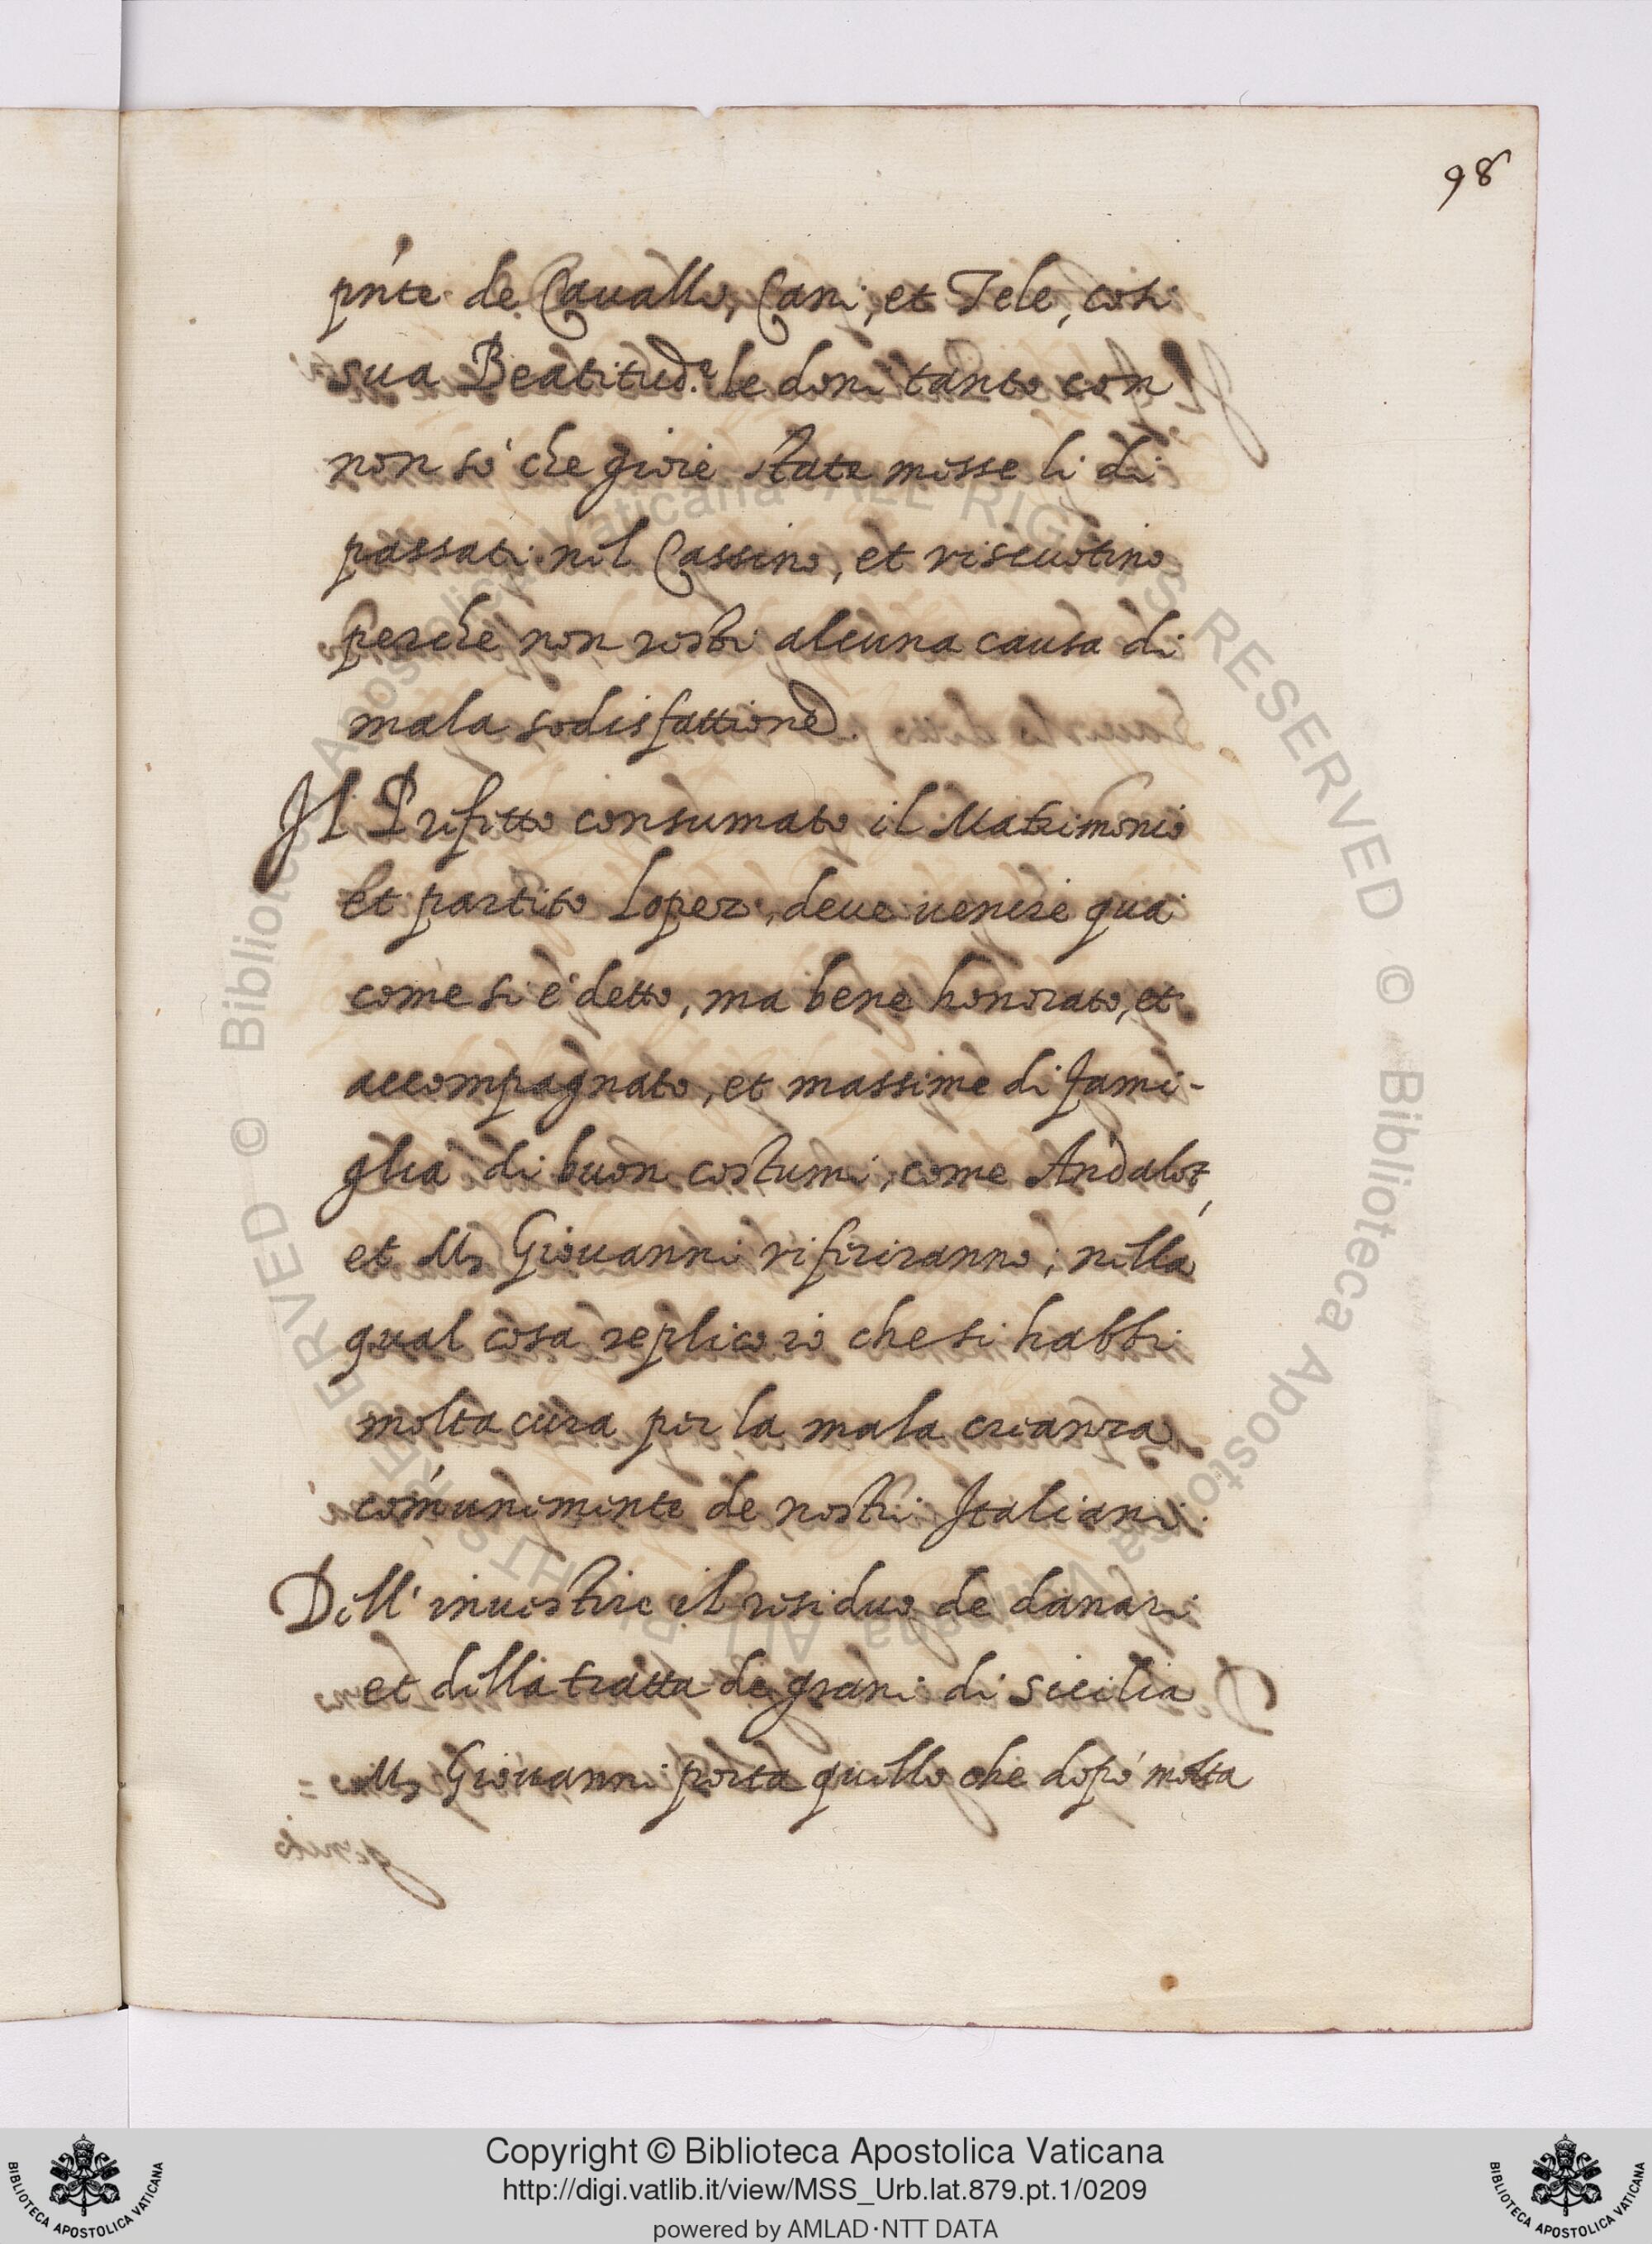 98
pn'te de Cavalli, Cani, et Tele, così
sua Beatitud.e le doni tanto con
non sò che gioie state messe li dì
passati nel Cassino, et riscuotino
perche non resti alcuna causa di
mala sodisfattione.
Il Prefetto consumato il Matrimonio
et partito Lopez, deue uenire quà
come si è detto, ma bene honorato, et
accompagnato, et massime di fami-
glia di buon costumi, come Andalot,
et Ms Giouanni riferiranno, nella
qual cosa replico io che si habbi
molta cura per la mala creanza
com'unemente de nostri Italiani.
Dell'inuestire il residuo de danari
et della tratta de grani di Sicilia
Ms Giouanni porta quello che dopò molta
Copyright © Biblioteca Apostolica Vaticana
http://digi.vatlib.it/view/MSS_Urb.lat.879.pt.1/0209
powered by AMLAD·NTT DATA
BIBLIOTECA APOSTOLICA VATICANA
BIBLIOTECA APOSTOLICA VATICANA